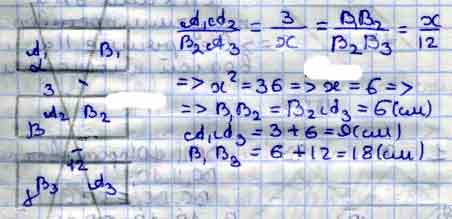 A₁ B₁
α
3
A₂ B₂
B
12
β B₃ A₃
A₁A₂/B₂A₃ = 3/x = B₁B₂/B₂B₃ = x/12
=> x² = 36 => x = 6 =>
=> B₁B₂ = B₂A₃ = 6 (см)
A₁A₃ = 3 + 6 = 9 (см)
B₁B₃ = 6 + 12 = 18 (см)